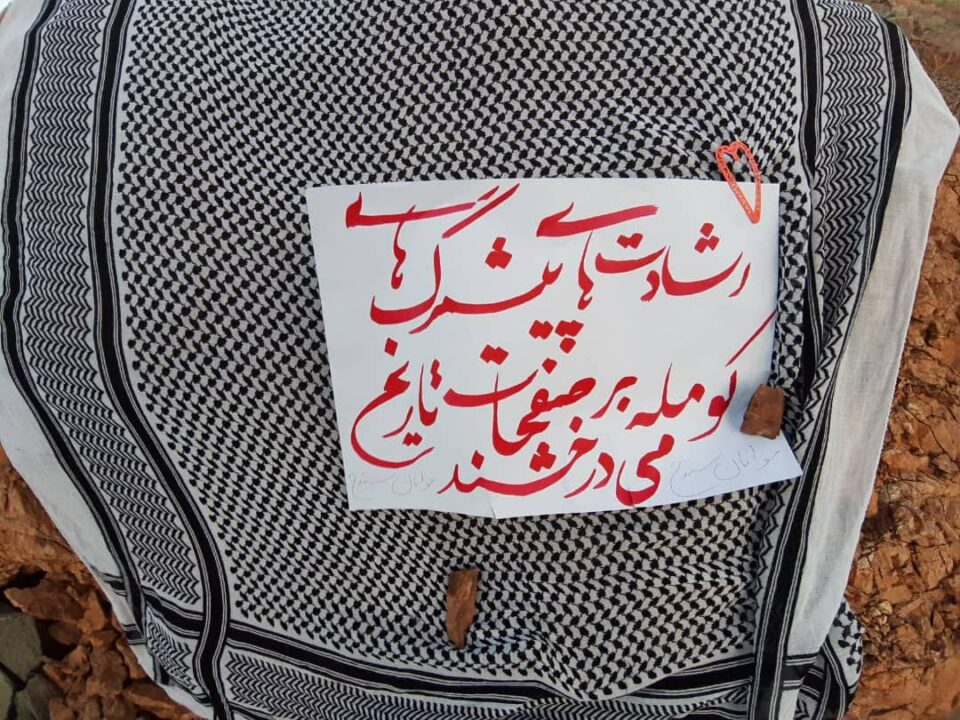 رشادت های پیشمرگ های
کومله بر صفحات تاریخ
می درخشند
جوانان سنندج
جوانان سنندج